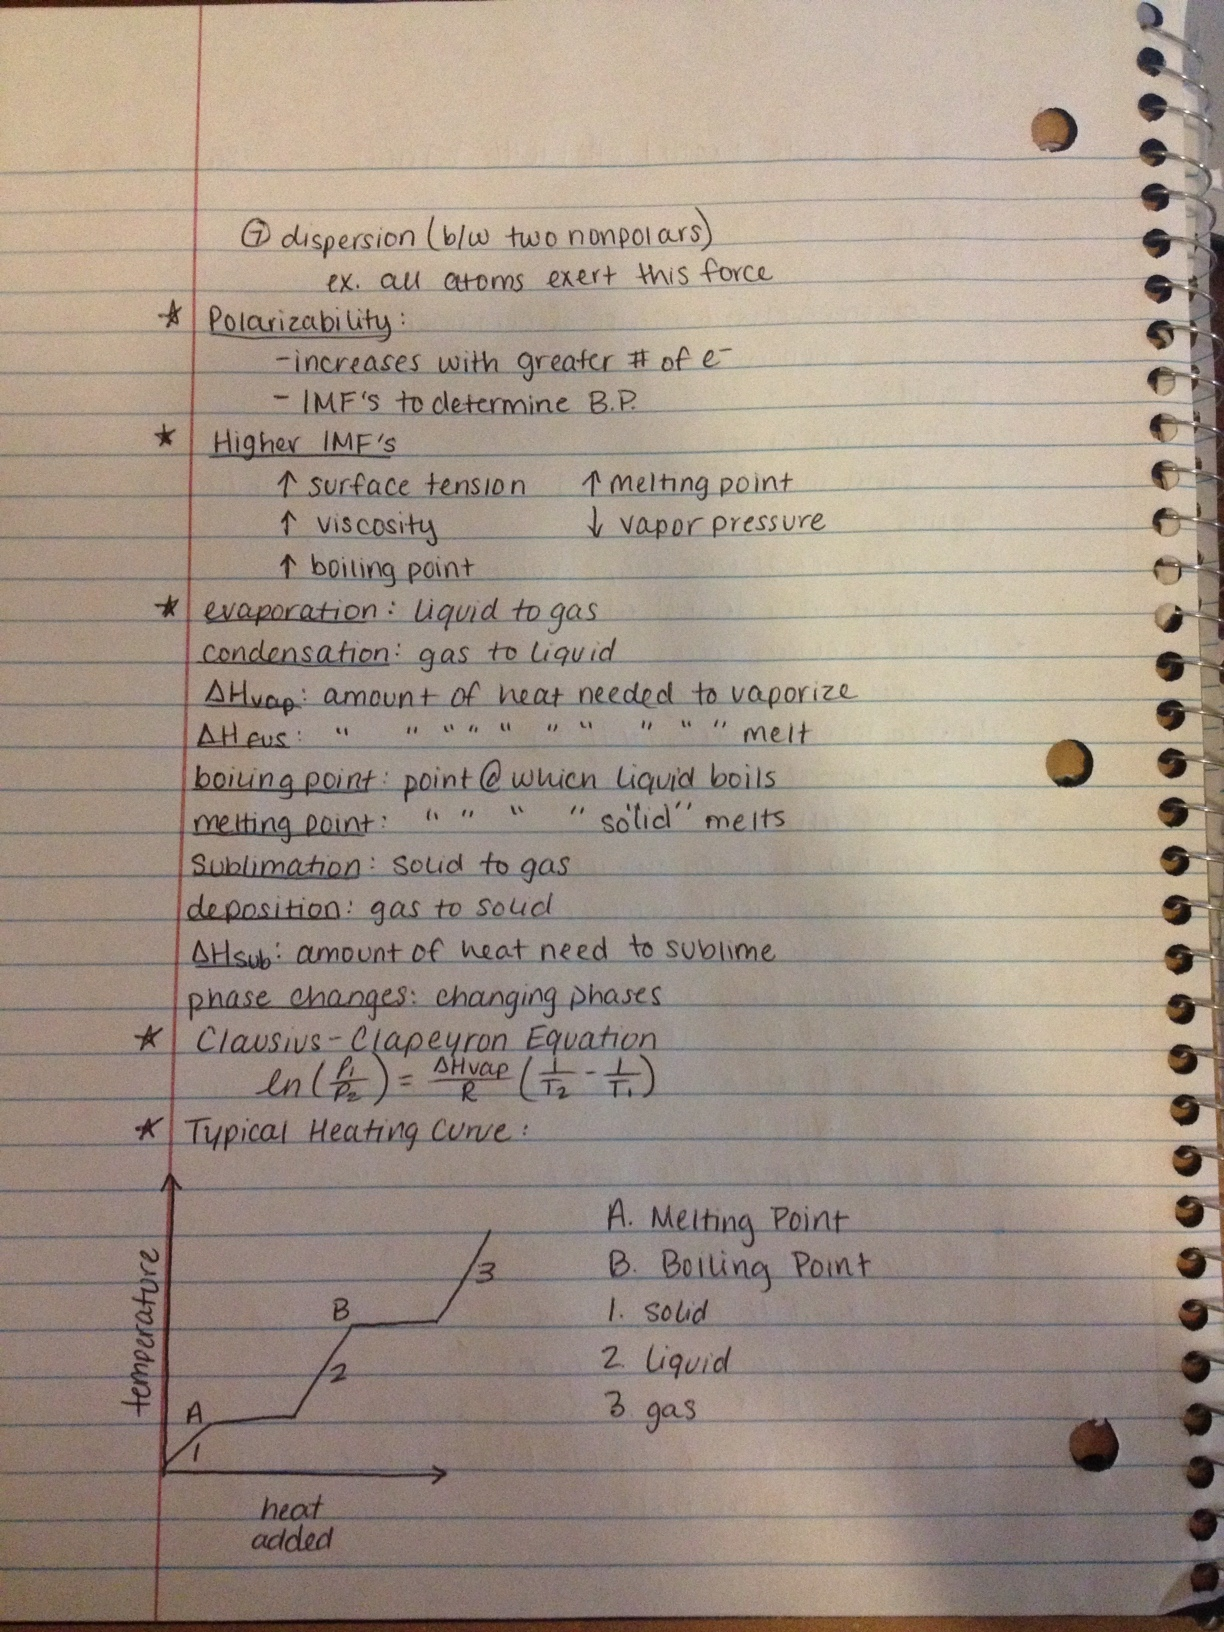 ⑦ dispersion (b/w two nonpolars)
ex. all atoms exert this force
★ Polarizability:
- increases with greater # of e⁻
- IMF's to determine B.P.
★ Higher IMF's
↑ surface tension ↑ melting point
↑ viscosity ↓ vapor pressure
↑ boiling point
★ evaporation: liquid to gas
condensation: gas to liquid
ΔHvap: amount of heat needed to vaporize
ΔHfus: " " " " " " " " " " melt
boiling point: point @ which liquid boils
melting point: " " " " solid" melts
Sublimation: solid to gas
deposition: gas to solid
ΔHsub: amount of heat need to sublime
phase changes: changing phases
★ Clausius-Clapeyron Equation
ln(P₁/P₂) = ΔHvap/R (1/T₂ - 1/T₁)
★ Typical Heating Curve:
A. Melting Point
B. Boiling Point
1. solid
2. liquid
3. gas
temperature
A
B
1
2
3
heat
added